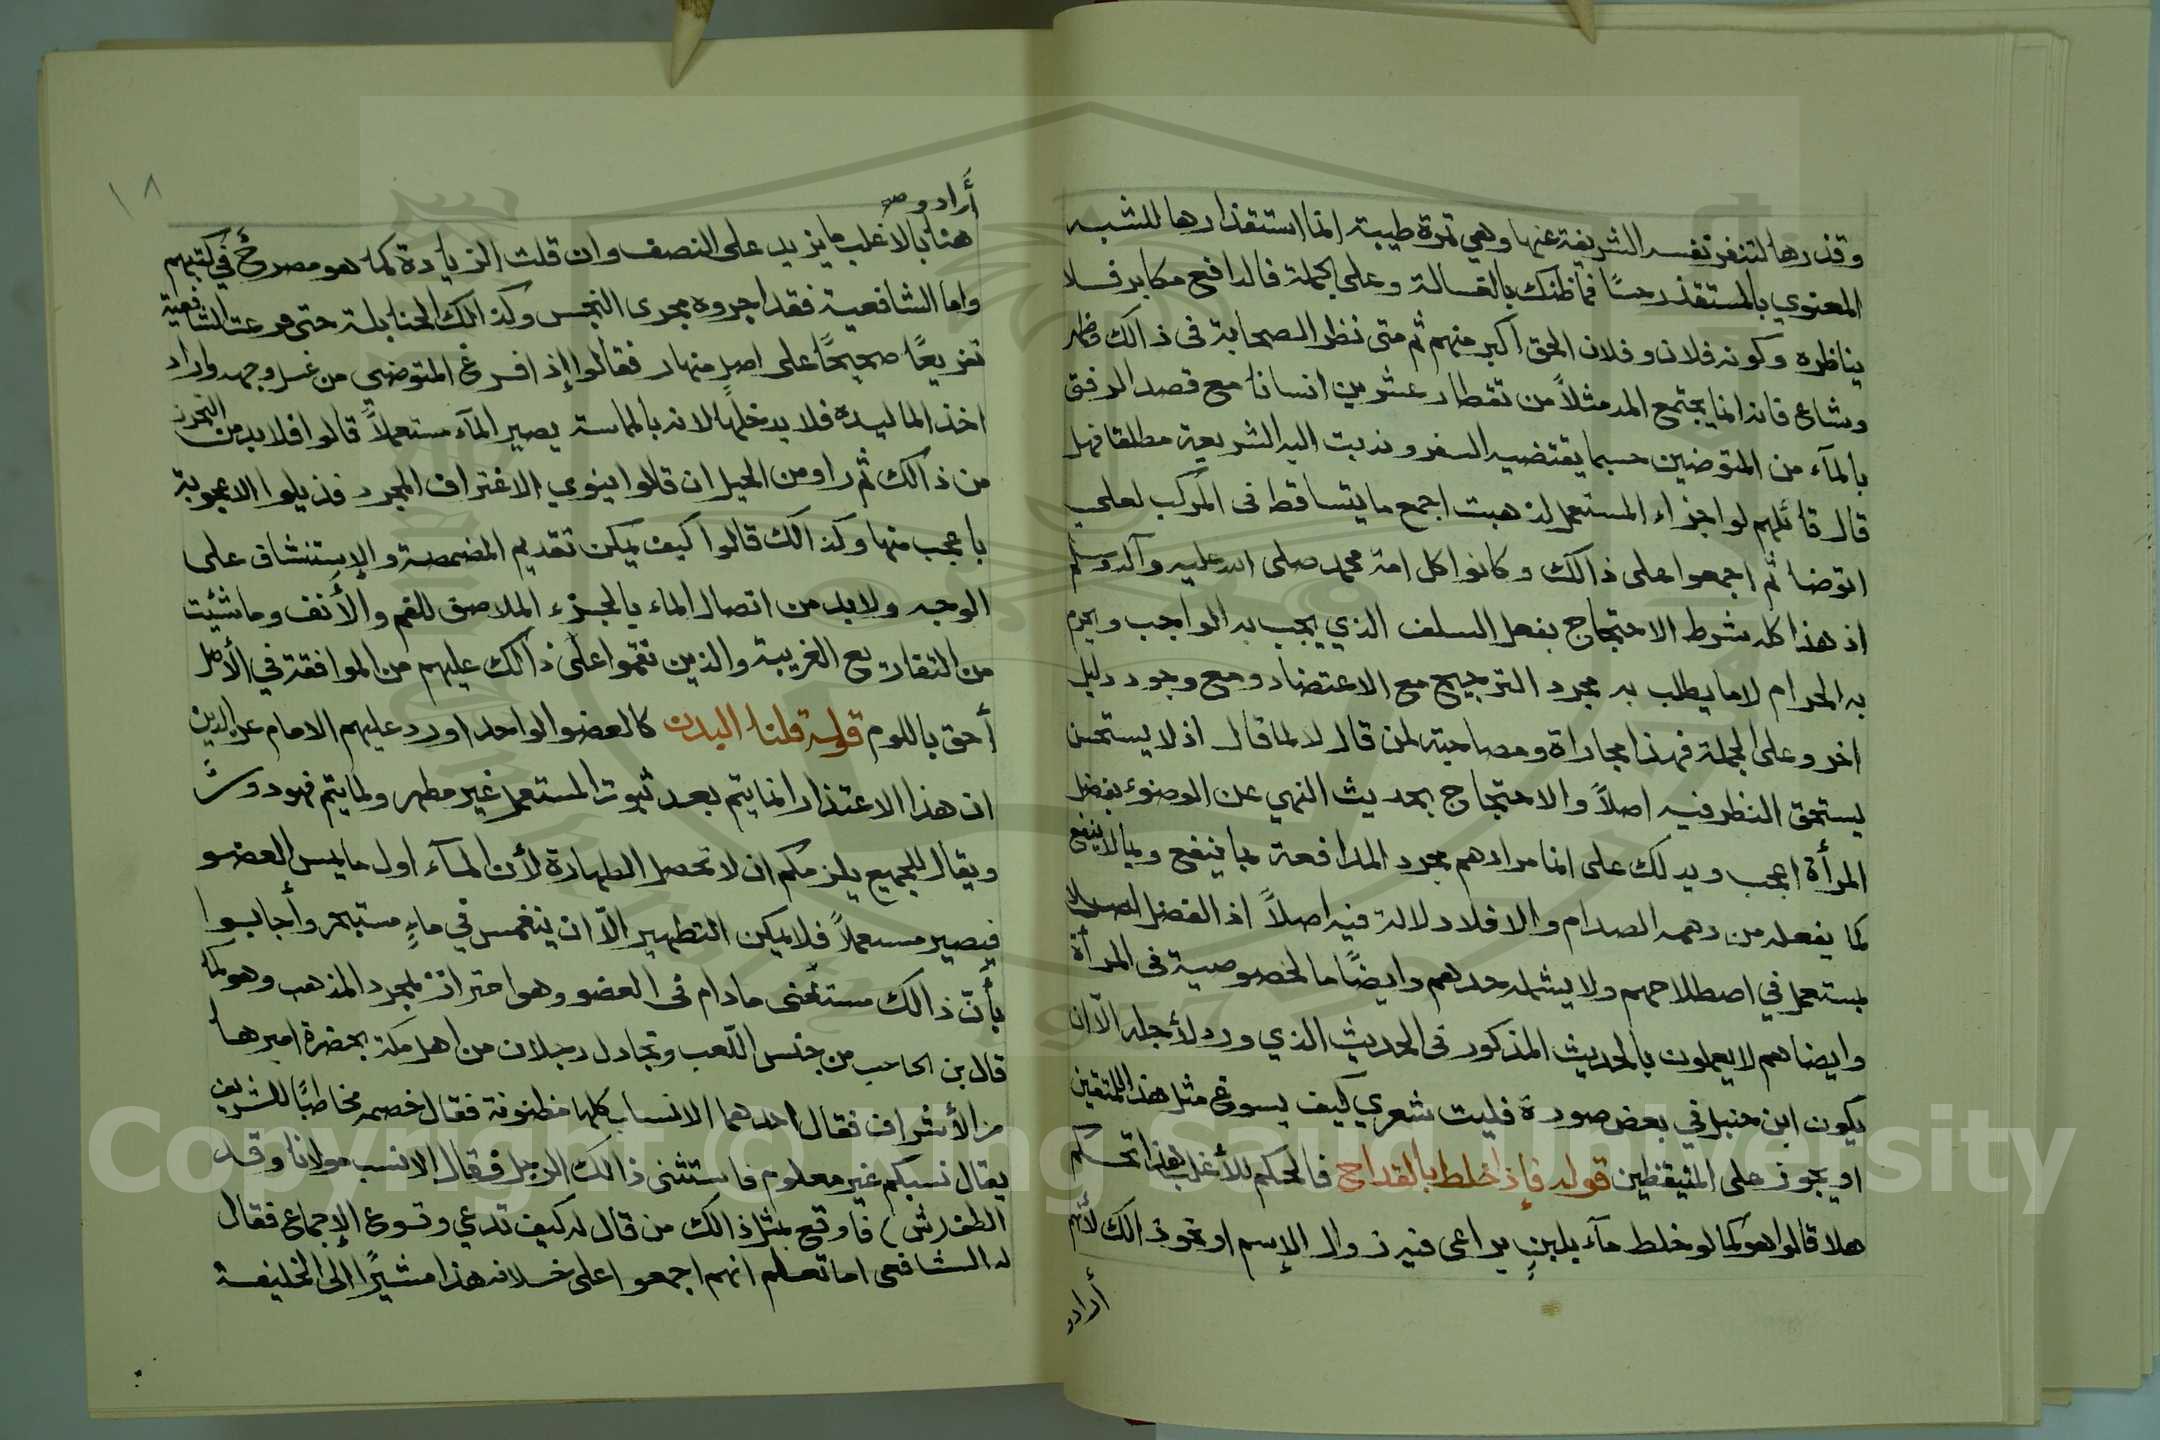 وقذرها لتنفر نفسه الشريفة عنها وهي تمرة طيبة انما استقذارها للشبه
المعنوي بالمستقذر حسًا فما ظنك بالغسالة وعلى الجملة فالدافع مكابر فلا
يناظره وكونه فلان وفلان الحق اكبر منهم ثم متى نظر الصحابة فى ذالك فظهر
وشاع فانه انما يجتمع المد مثلاً من تقطار عشرين انسانا مع قصد الرفق
بالمآء من المتوضين حسبما يقتضيه السفر وندبت اليه الشريعة مطلقا فهل
قال قائلهم لو اجزاء المستعمل لذهبت اجمع ما يتساقط فى المركب لعلي
اتوضا ثم اجمعوا على ذالك وكانوا كل امة محمد صلى الله عليه وآله وسلم
اذ هذا كله شرط الاحتجاج بفعل السلف الذي يجب به الواجب ويحرم
به الحرام لا ما يطلب به مجرد الترجيح مع الاعتضاد ومع وجود دليل
اخر وعلى الجملة فهذا مجاراة ومصاحبة لمن قال لا لما قال اذ لا يستحسن
يستحق النظر فيه اصلاً والاحتجاج بحديث النهي عن الوضوء بفضل
المرأة اعجب ويدلك على انما مرادهم مجرد المدافعة بما ينفع وبما لا ينفع
كما يفعله من دهمه الصدام والا فلا دلالة فيه اصلاً اذ الفضل ليس
بمستعمل في اصطلاحهم ولا يشمله حدهم وايضًا ما الخصوصية فى المرأة
وايضا هم لا يعملون بالحديث المذكور فى الحديث الذي ورد لأجله الّا ان
يكون ابن حنبل في بعض صورة فليت شعري كيف يسوغ مثل هذا للمتقين
او يجوز على المتيقظين قوله فإذا خلط بالقداح فالحكم للأغلب هذا تحكم
هلا قالوا هو كما لو خلط مآء بلبنٍ يراعى فيه زوال الإسم او نحو ذالك لأنهم
أرادو
أرادو صه
هنا بالاغلب ما يزيد على النصف وان قلت الزيادة كما هو مصرحٌ في كتبهم
واما الشافعية فقد اجروه مجرى النجس وكذالك الحنابلة حتى فرعت الشافعية
تفريعًا صحيحًا على اصلٍ منهار فقالوا إذا فرغ المتوضي من غسل وجهه واراد
اخذ الما ليده فلا يدخلها لانه بالماسة يصير المآء مستعملاً قالوا فلا بد من التحرز
من ذالك ثم راو من الحيل ان قالوا ينوي الاغتراف المجرد فذيلوا الاعجوبة
باعجب منها وكذالك قالوا كيف يمكن تقديم المضمضة والإستنشاق على
الوجه ولابد من اتصال الماء بالجزء الملاصق للفم والأنف وما شئت
من التفاريع الغريبة والذين نقموا على ذالك عليهم من الموافقة في الأصل
أحق باللوم قوله قلنا البدن كالعضو الواحد اورد عليهم الامام عز الدين
ان هذا الاعتذار انما يتم بعد ثبوت المستعمل غير مطهر ولما يتم فهو دورٌ
ويقال للجميع يلزمكم ان لا تحصل الطهارة لأن المآء اول ما يمس العضو
فيصير مستعملاً فلا يمكن التطهير الّا ان ينغمس في ماءٍ مستبحر وأجابوا
بأنّ ذالك مستثنى ما دام فى العضو وهو احتراز بمجرد المذهب وهو كما
قال بن الحاجب من جنس اللّعب وتجادل رجلان من اهل مكة بحضرة اميرها
من الأشراف فقال احدهما الانساب كلها مظنونة فقال خصمه مخاطبًا للشريف
يقال نسبكم غير معلوم فاستثنى ذالك الرجل فقال الا نسب مولانا وقد
فاوقع بمثل ذالك من قال له كيف تدعي وقوع الإجماع فقال
له الشافعى اما تعلم انهم اجمعوا على خلافة هذا مشيرًا الى الخليفة